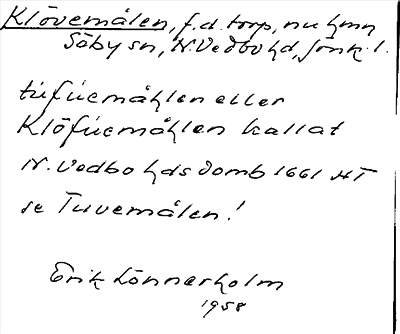 Klövemålen, f.d. torp, nu hmn
Säby sn, N. Vedbo hd, Jönk. l.
tüfüemåhlen eller
Klöfüemåhlen kallat
N. Vedbo hds domb 1661 HT
se Tuvemålen!
Erik Lönnerholm
1958